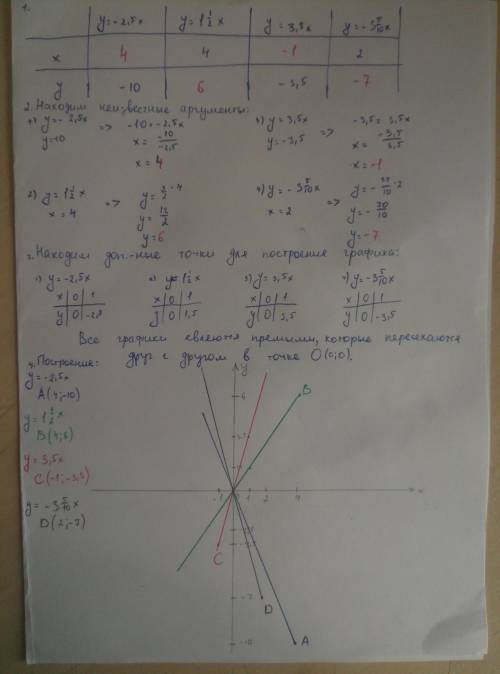 1.
y=-2,5x y=1 1/2 x y=3,5x y=-3 5/10 x
x 4 4 -1 2
y -10 6 -3,5 -7
2. Находим неизвестные аргументы:
1) y=-2,5x => -10=-2,5x 3) y=3,5x => -3,5=3,5x
y=10 x= -10/-2,5 y=-3,5 x= -3,5/3,5
x=4 x=-1
2) y=1 1/2 x => y=3/2·4 4) y=-3 5/10 x => y=-35/10·2
x=4 y=12/2 x=2 y=-70/10
y=6 y=-7
3. Находим доп.-ные точки для построение графика:
1) y=-2,5x 2) y=1 1/2 x 3) y=3,5x 4) y=-3 5/10 x
x 0 1 x 0 1 x 0 1 x 0 1
y 0 -2,5 y 0 1,5 y 0 3,5 y 0 -3,5
Все графики евлеются премыми, которые пересекаются
друг с другом в точке O(0;0).
4. Построение:
y=-2,5x
A(4;-10)
y=1 1/2 x
B(4;6)
y=3,5x
C(-1;-3,5)
y=-3 5/10 x
D(2;-7)
y
6
B
-1 1 2 4 x
C
-7
D
-10
A